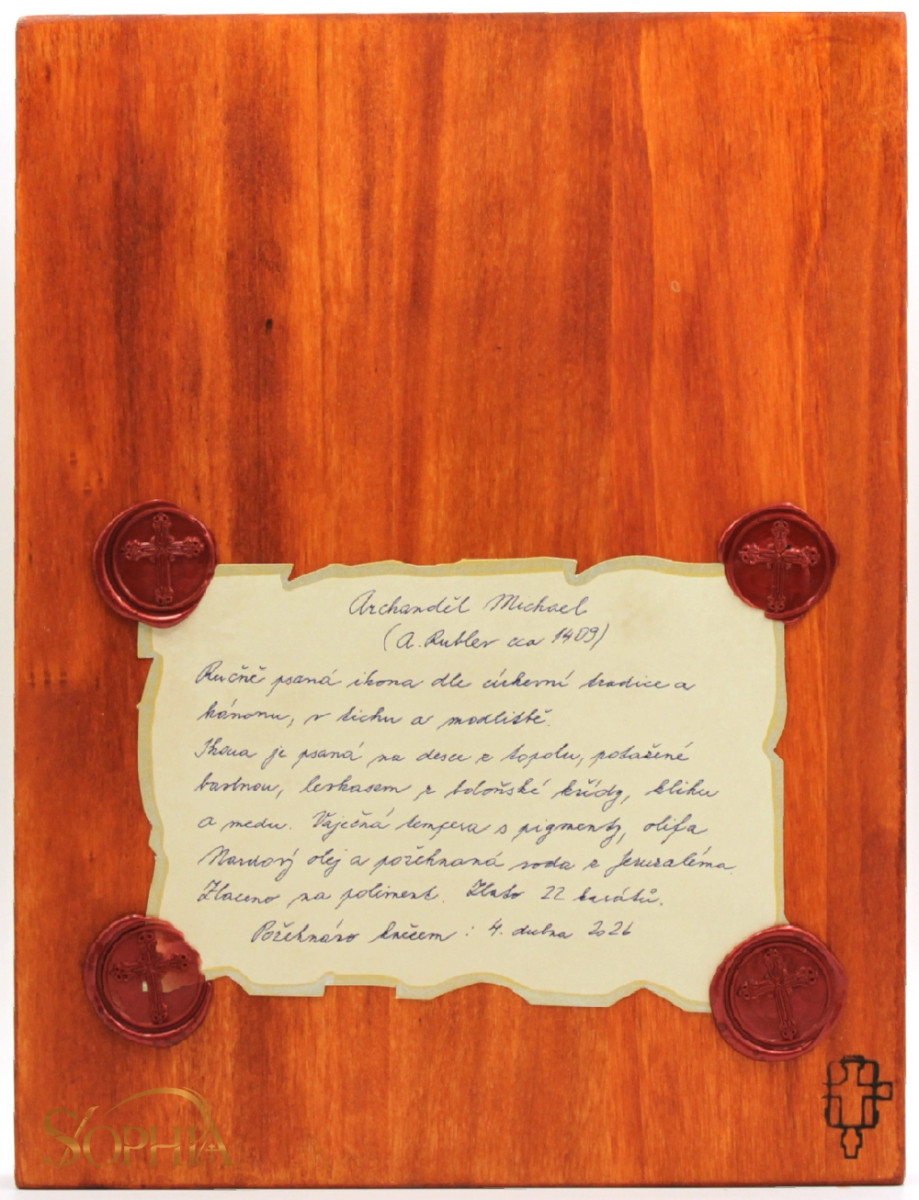 Archanděl Michael
(A. Rublev cca 1409)
Ručně psaná ikona dle církevní tradice a
kánonu, v tichu a modlitbě.
Ikona je psaná na desce z topolu, potažené
bavlnou, levkasem z boloňské křídy, klihu
a medu. Vaječná tempera s pigmenty, olifa
Nardový olej a požehnaná voda z Jeruzaléma.
Zlaceno na poliment. Zlato 22 karátů.
Požehnáno knězem : 4. dubna 2026
SOPHIA